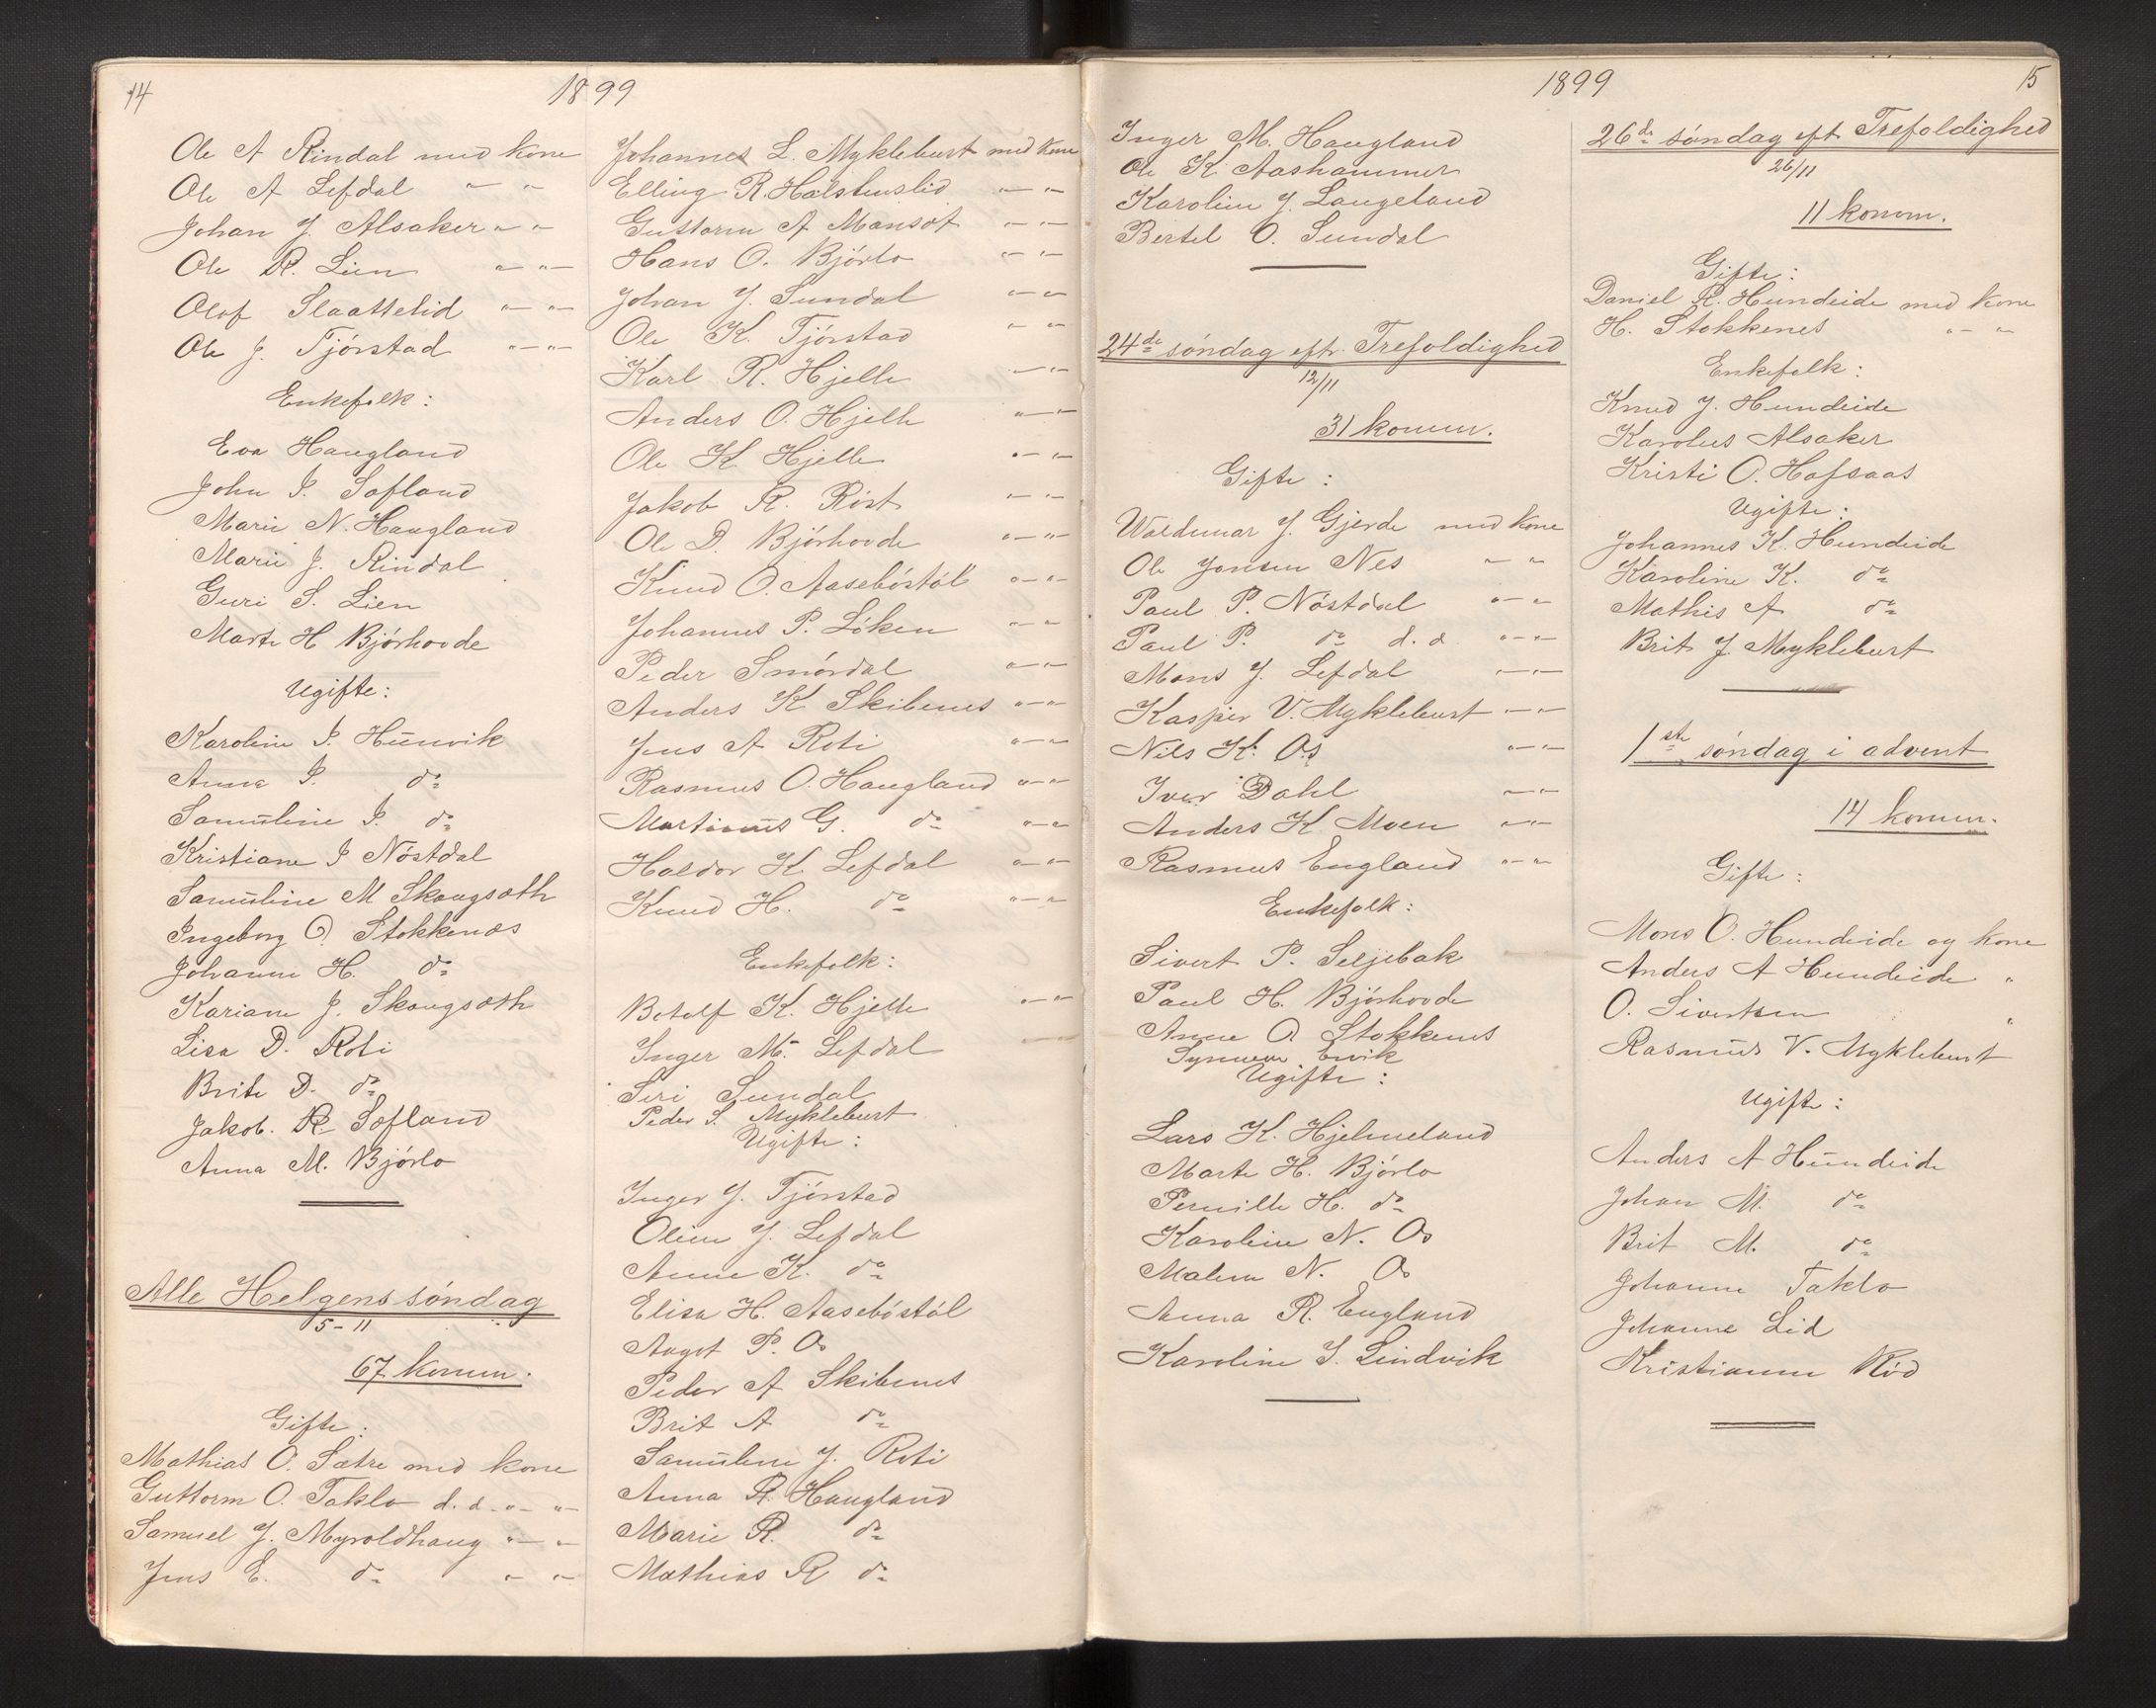 14
1899
Ole A Rindal med kone
Ole A Lefdal " — "
Johan J. Alsaker " — "
Ole R. Lien " — "
Olof Slaattelid " — "
Ole J. Tjórstad " — "
Enkefolk:
Eva Haugland
John I. Søfland
Marie N. Haugland
Marie J. Rindal
Guri S. Lien
Marte H Bjórhovde
Ugifte:
Karoline I. Hunvik
Anna I. do
Samuline I. do
Kristiane I Nóstdal
Samuline M Skougsæth
Ingeborg O. Stokkenæs
Johanne H. do
Kariane J. Skougsæth
Lisa D. Roti
Brite D. do
Jakob. R Søfland
Anna M. Bjórlo
Alle Helgens søndag
5-11
67 komm.
Gifte:
Mathias O. Sætre med kone
Guttorm O. Taklo d. d. " — "
Samuel J. Myroldhaug " — "
Jens E. do " — "
Johannes L. Myklebust med kone
Elling R. Holstenslid " — "
Guttorm A Monsøt " — "
Hans O. Bjórlo " — "
Johan J. Sundal " — "
Ole K. Tjórstad " — "
Karl R. Hjelle " — "
Anders O. Hjelle " — "
Ole K Hjelle " — "
Jakob R. Rist " — "
Ole D. Bjórhovde " — "
Knud O. Aasebóstól " — "
Johannes P. Lóken " — "
Peder Smórdal " — "
Anders K Skibenes " — "
Jens A Roti " — "
Rasmus O. Haugland " — "
Martinus G. do " — "
Haldor K. Lefdal " — "
Knud H. do " — "
Enkefolk:
Botolf K. Hjelle " — "
Inger M. Lefdal
Siri Sundal
Peder S. Myklebust
Ugifte:
Inger J. Tjórstad
Oline J. Lefdal
Anne K. do
Elisa H. Aasebóstól
Aagot P. Os
Peder A Skibenes
Brit A do
Samuline J. Roti
Anna R. Haugland
Marie R. do
Mathias R do
1899
15
Inger M. Haugland
Ole K. Aashammer
Karoline J. Langeland
Bertel O. Sundal
24de søndag eft. Trefoldighed
12/11
31 komm.
Gifte:
Woldemar J. Gjerde med kone
Ole Jonsen Nes " — "
Paul P. Nóstdal " — "
Paul P. do d. d. " — "
Mons J. Lefdal " — "
Kasper V. Myklebust " — "
Nils K. Os " — "
Iver Dahl " — "
Anders K Moen " — "
Rasmus England " — "
Enkefolk:
Sivert P. Seljebak
Paul H. Bjórhovde
Anne O Stokkenes
Synneve Ervik
Ugifte:
Lars K. Hjelmeland
Marte H. Bjórlo
Pernille H. do
Karoline N. Os
Malene N. Os
Anna R. England
Karoline I. Lindvik
26de søndag eft Trefoldighed
26/11
11 komm.
Gifte:
Daniel R. Hundeide med kone
H. Stokkenes " — "
Enkefolk:
Knud J. Hundeide
Karolus Alsaker
Kristi O. Hafsaas
Ugifte:
Johannes K. Hundeide
Karoline K. do
Mathis A do
Brit J. Myklebust
1ste søndag i advent
14 komm.
Gifte:
Mons O. Hundeide og kone
Anders A Hundeide "
O. Sivertsen "
Rasmus V. Myklebust
Ugifte:
Anders A Hundeide
Johan M. do
Brit M. do
Johanne Taklo
Johanne Lid
Kristianne Rød